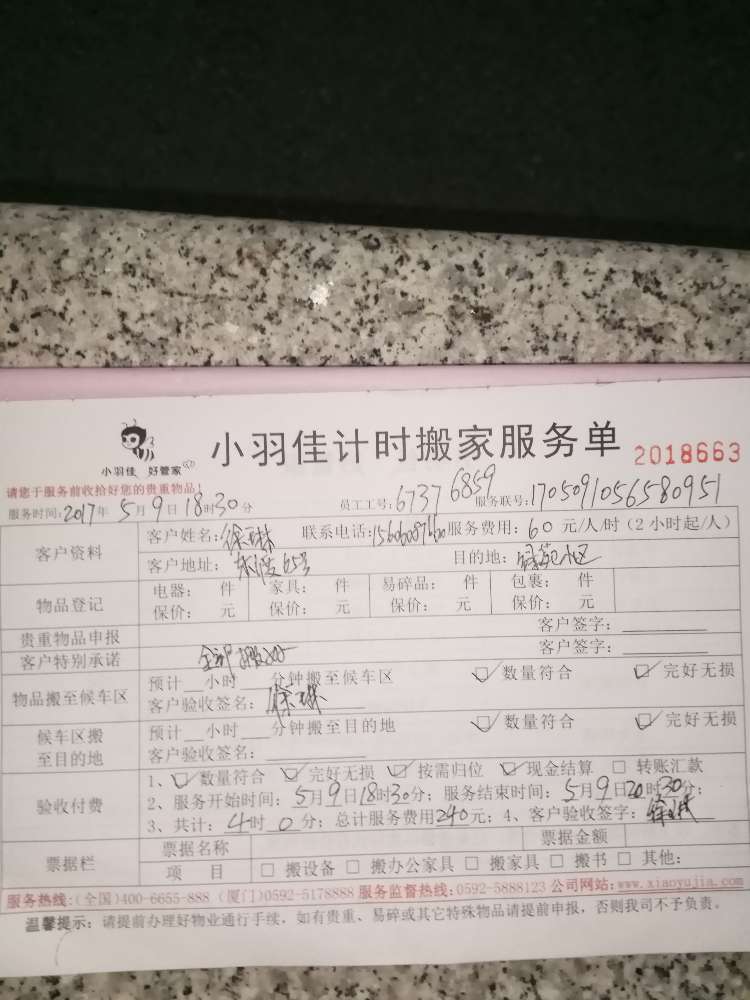 小羽佳 好管家
小羽佳计时搬家服务单 2018663
请您于服务前收拾好您的贵重物品!
服务时间:2017年5月9日18时30分 员工工号:6737 6859 服务联号:170509105658 0951
客户资料
客户姓名: 联系电话: 服务费用:60元/人/时(2小时起/人)
客户地址: 65号 目的地:绿苑小区
物品登记
电器: 件 家具: 件 易碎品: 件 包裹: 件
保价: 元 保价: 元 保价: 元 保价: 元
贵重物品申报 客户签字:
客户特别承诺 全部搬好 客户签字:
物品搬至候车区
预计__小时__分钟搬至候车区 ☑数量符合 ☑完好无损
客户验收签名:
候车区搬
至目的地
预计__小时__分钟搬至目的地 ☑数量符合 ☑完好无损
客户验收签名:
验收付费
1、☑数量符合 ☑完好无损 ☑按需归位 ☑现金结算 □转账汇款
2、服务开始时间:5月9日18时30分;服务结束时间:5月9日20时30分;
3、共计:4时0分;总计服务费用240元;4、客户验收签字:
票据栏
票据名称 票据金额
项 目 □搬设备 □搬办公家具 □搬家具 □搬书 □其他:
服务热线:(全国)400-6655-888 (厦门)0592-5178888 服务监督热线:0592-5888123 公司网站:www.xiaoyujia.com
温馨提示:请提前办理好物业通行手续,如有贵重、易碎或其它特殊物品请提前申报,否则我司不予负责。